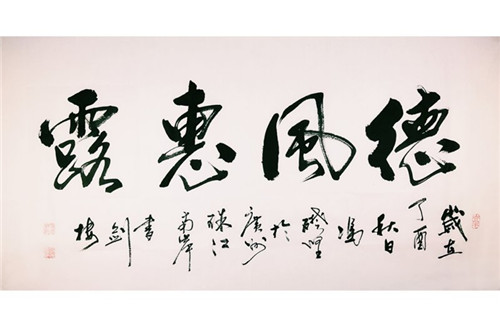 德風惠露
歲在丁酉秋日馮於廣州珠江南岸書劍樓